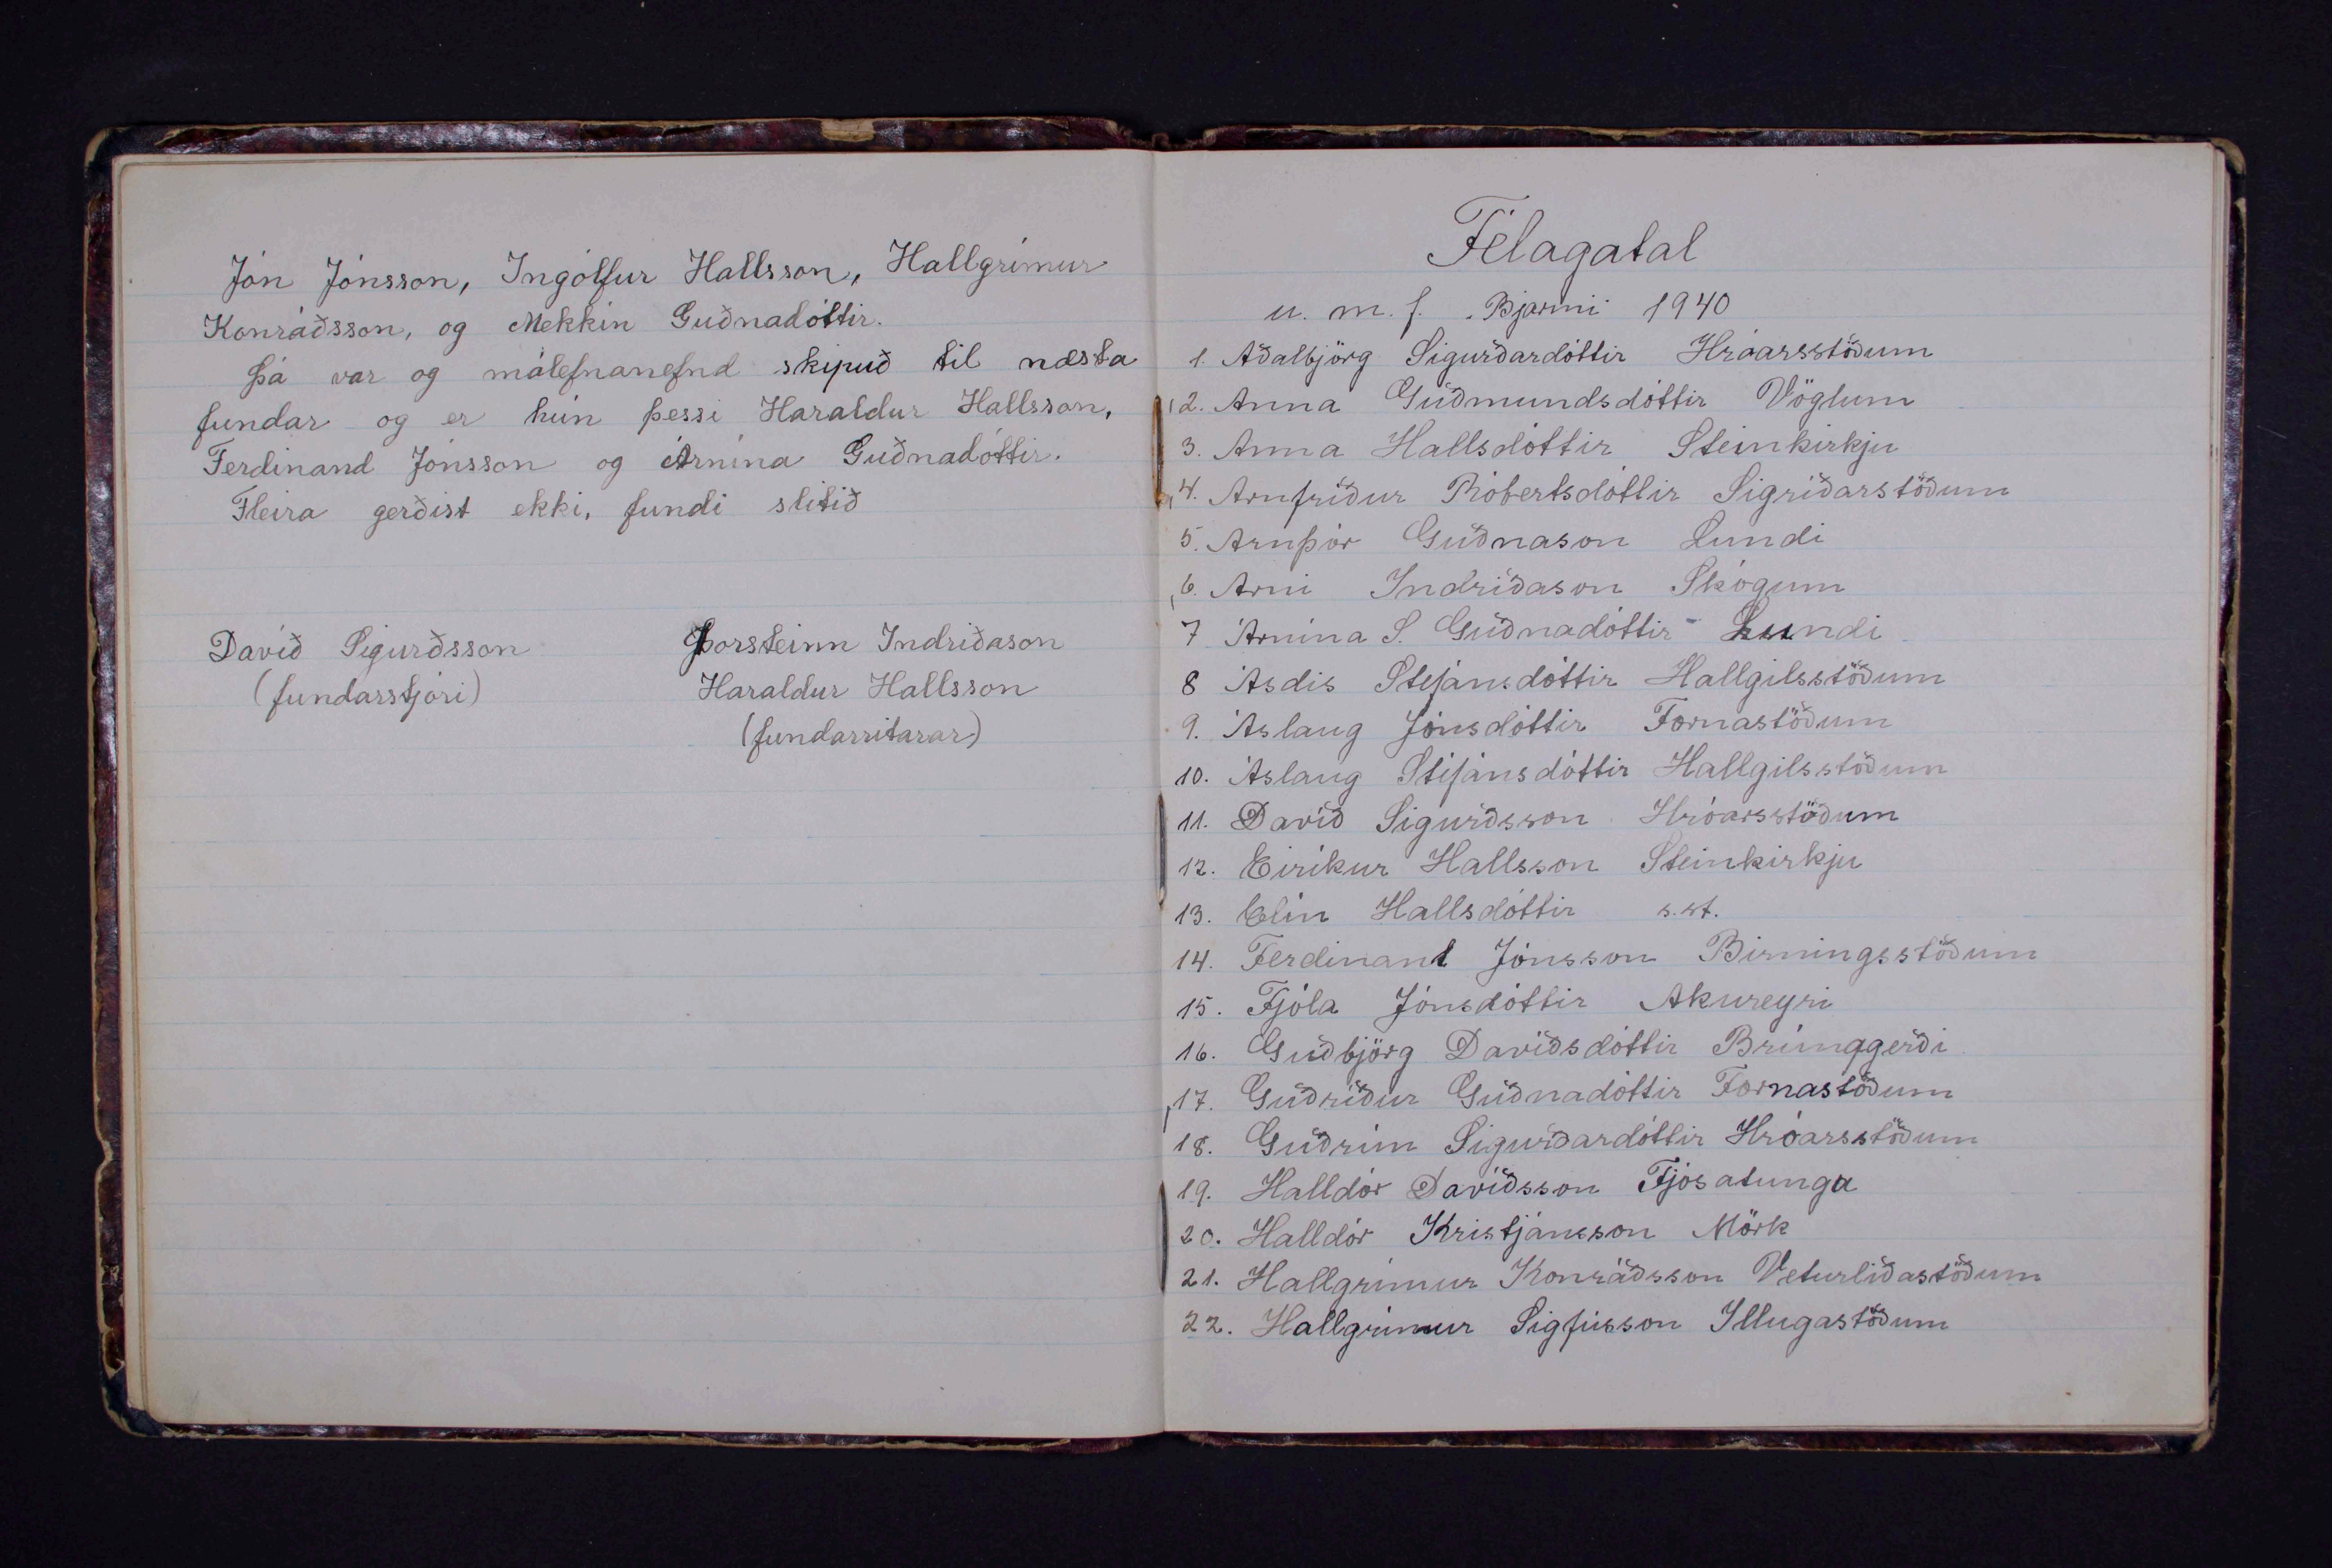 Jón Jónsson, Ingólfur Hallsson, Hallgrímur
Konráðsson, og Mekkin Guðnadóttir.
Þá var og málefnanefnd skipuð til næsta
fundar og er hún þessi Haraldur Hallsson,
Ferdinand Jónsson og Árnína Guðnadóttir.
Fleira gerðist ekki, fundi slitið
Davíð Sigurðsson
(fundarstjóri)
Þorsteinn Indriðason
Haraldur Hallsson
(fundarritarar)
Félagatal
u. m. f. Bjarmi 1940
1. Aðalbjörg Sigurðardóttir Hróarsstöðum
2. Anna Guðmundsdóttir Vöglum
3. Anna Hallsdóttir Steinkirkju
4. Arnfríður Róbertsdóttir Sigríðarstöðum
5. Arnþór Guðnason Lundi
6. Árni Indriðason Skógum
7 Árnína S. Guðnadóttir Lundi
8 Ásdís Stefánsdóttir Hallgilsstöðum
9. Áslaug Jónsdóttir Fornastöðum
10. Áslaug Stefánsdóttir Hallgilsstöðum
11. Davíð Sigurðsson Hróarsstöðum
12. Eiríkur Hallsson Steinkirkju
13. Elín Hallsdóttir s.st.
14. Ferdinand Jónsson Birningsstöðum
15. Fjóla Jónsdóttir Akureyri
16. Guðbjörg Davíðsdóttir Brúnggerði
17. Guðríður Guðnadóttir Fornastöðum
18. Guðrún Sigurðardóttir Hróarsstöðum
19. Halldór Davíðsson Fjósatunga
20. Halldór Kristjánsson Mörk
21. Hallgrímur Konráðsson Veturliðastöðum
22. Hallgrímur Sigfússon Illugastöðum